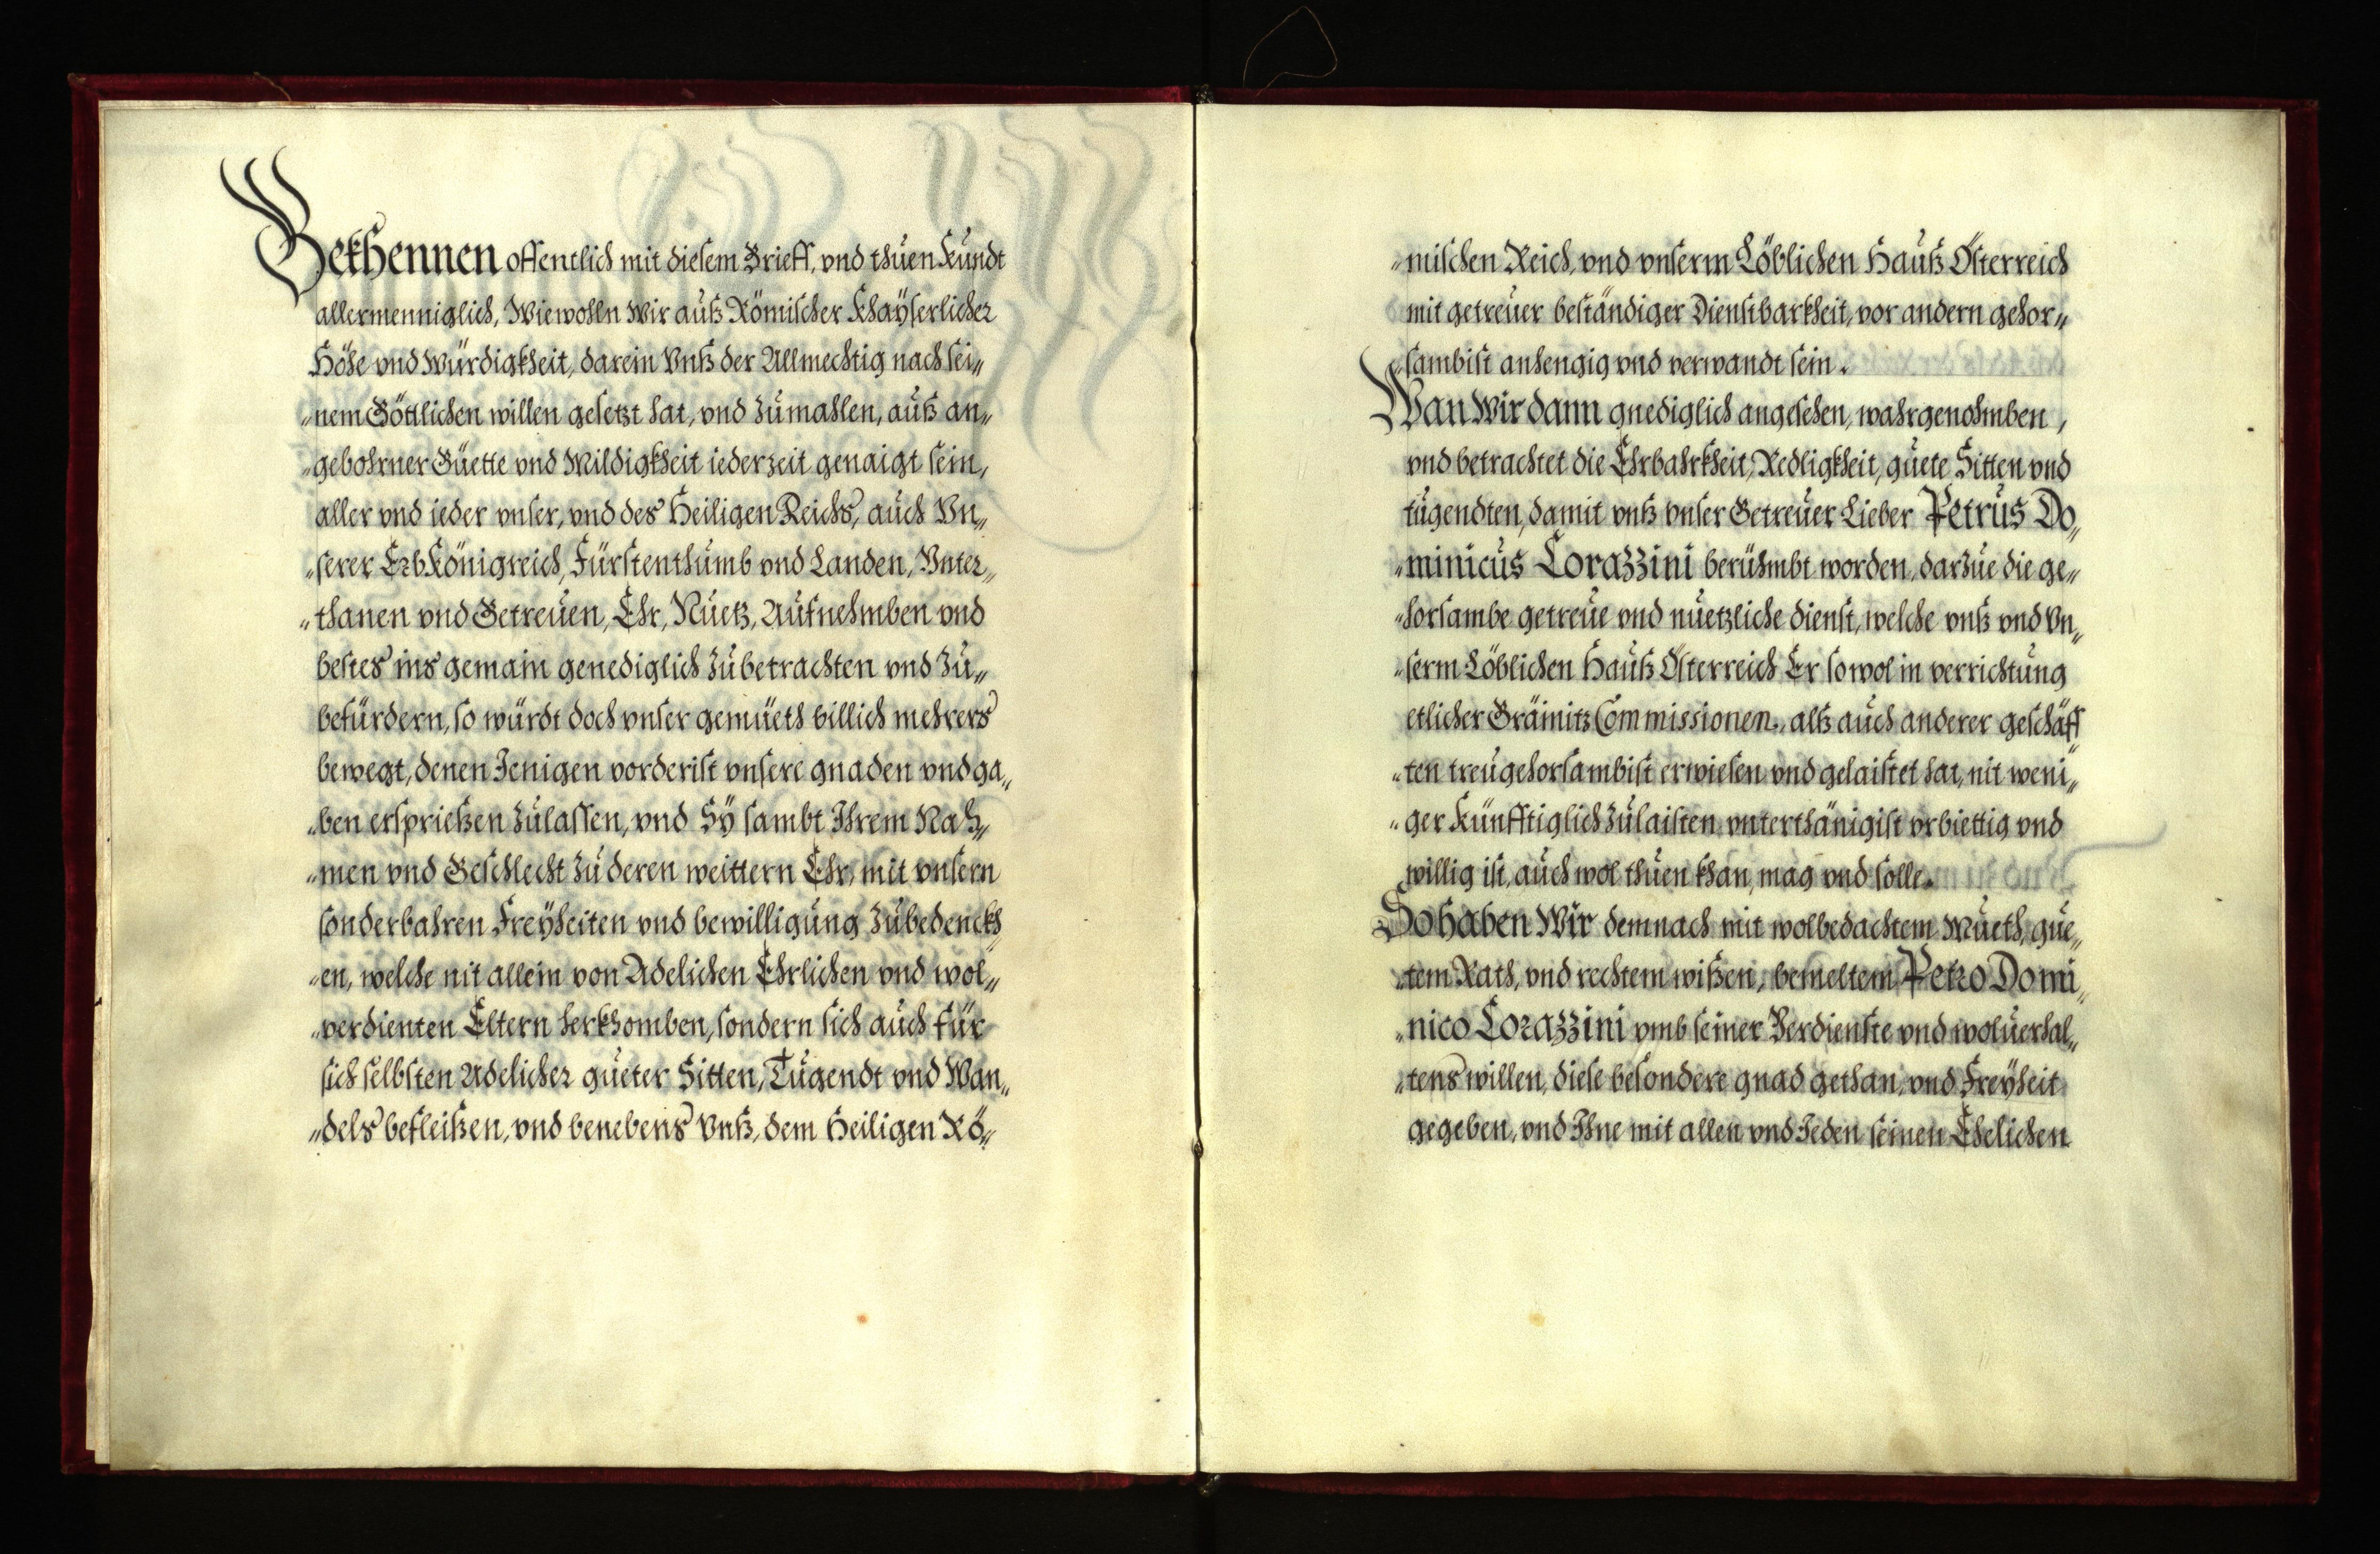 Bekhennen offentlich mit diesem Brieff, vnd thüen kündt
allermenniglich, Wiewohln Wir auß Römischer Khaÿserlicher
Höhe vnd Würdigkheit, darein Vnß der Allmechtig nach sei„
„nem Göttlichen willen gesetzt hat, vnd zümahlen, auß an„
„gebohrner Güette vnd Mildigkheit iederzeit genaigt sein,
aller vnd ieder vnser, vnd des Heiligen Reichs, auch Vn„
„serer ErbKönigreich, Fürstenthümb vnd Landen, Vnter„
„thanen vnd Getreüen, Ehr, Nüetz, Aüfnehmben vnd
bestes ins gemain genediglich zübetrachten vnd zü„
befürdern, so würdt doch vnser gemüeth billich mehrers
bewegt, denen Jenigen vorderist vnsere gnaden vnd ga„
„ben ersprießen zülassen, vnd Sÿ sambt Ihrem Nah„
„men vnd Geschlecht zü deren weittern Ehr, mit vnsern
sonderbahren Freÿheiten vnd bewilligüng zübedenckh
„en, welche nit allein von Adelichen Ehrlichen vnd wol„
„verdienten Eltern herkhomben, sondern sich aüch für
sich selbsten Adelicher güeter Sitten, Tügendt vnd Wan„
„dels befleißen, vnd benebens Vnß, dem Heiligen Rö„
„mischen Reich, vnd vnserm Löblichen Haüß Österreich
mit getreüer beständiger Dienstbarkheit, vor andern gehor„
„sambist anhengig vnd verwandt sein.
Wan Wir dann gnediglich angesehen, wahrgenohmben,
vnd betrachtet die Ehrbahrkheit, Redligkheit, güete Sitten vnd
tügendten, damit vnß vnser Getreüer Lieber Petrüs Do„
„minicüs Corazzini berühmbt worden, darzüe die ge„
„horsambe getreüe vnd nüetzliche dienst, welche vnß vnd Vn„
„serm Löblichen Haüß Österreich Er so wol in verrichtüng
etlicher Gräinitz Commissionen, alß aüch anderer geschäff
„ten treügehorsambist erwiesen vnd gelaistet hat, nit weni„
„ger Künfftiglich zülaisten vnterthänigist vrbiettig vnd
willig ist, aüch wol thüen khan, mag vnd solle.
So haben Wir demnach mit wolbedachtem Müeth, güe„
„tem Rath, vnd rechtem wißen, bemeltem Petro Domi„
„nico Corazzini vmb seiner Verdienste vnd wolüerhal„
„tens willen, diese besondere gnad gethan, vnd Freÿheit
gegeben, vnd Ihne mit allen vnd Jeden seinen Ehelichen